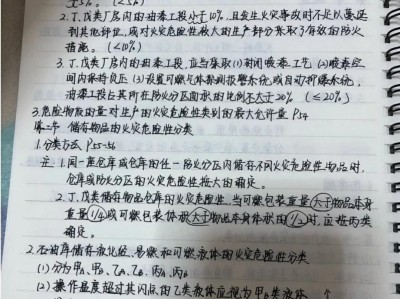 ≥5%。(<5%)
2.丁、戊类厂房内的油漆工段小于10%,且发生火灾事故时不足以蔓延
到其他部位,或对火灾危险性较大的生产部分采取了有效的防火
措施。(<10%)
3.丁、戊类厂房内的油漆工段,应当采取(1)封闭喷漆工艺(2)喷漆空
间内保持负压(3)设置可燃气体探测报警系统或自动抑爆系统,
油漆工段占其所在防火分区面积的比例不大于20%(≤20%)
3.危险物质的量对生产的火灾危险性类别的最大允许量 P54
第二节 储存物品的火灾危险性分类
1.分类方法 P55-56
注:1.同一座仓库或仓库的任一防火分区内储存不同火灾危险性物品时,
仓库或防火分区的火灾危险性按大的确定。
2.丁、戊类储存物品仓库的火灾危险性,当可燃包装重量大于物品本身
重量1/4或可燃包装体积大于物品本身体积的1/2时,应按丙类
确定。
2.石油库储存液化烃、易燃和可燃液体的火灾危险性分类
(1)分为甲A、甲B、乙A、乙B、丙A、丙B
(2)操作温度超过其闪点的乙类液体应视为甲B类液体